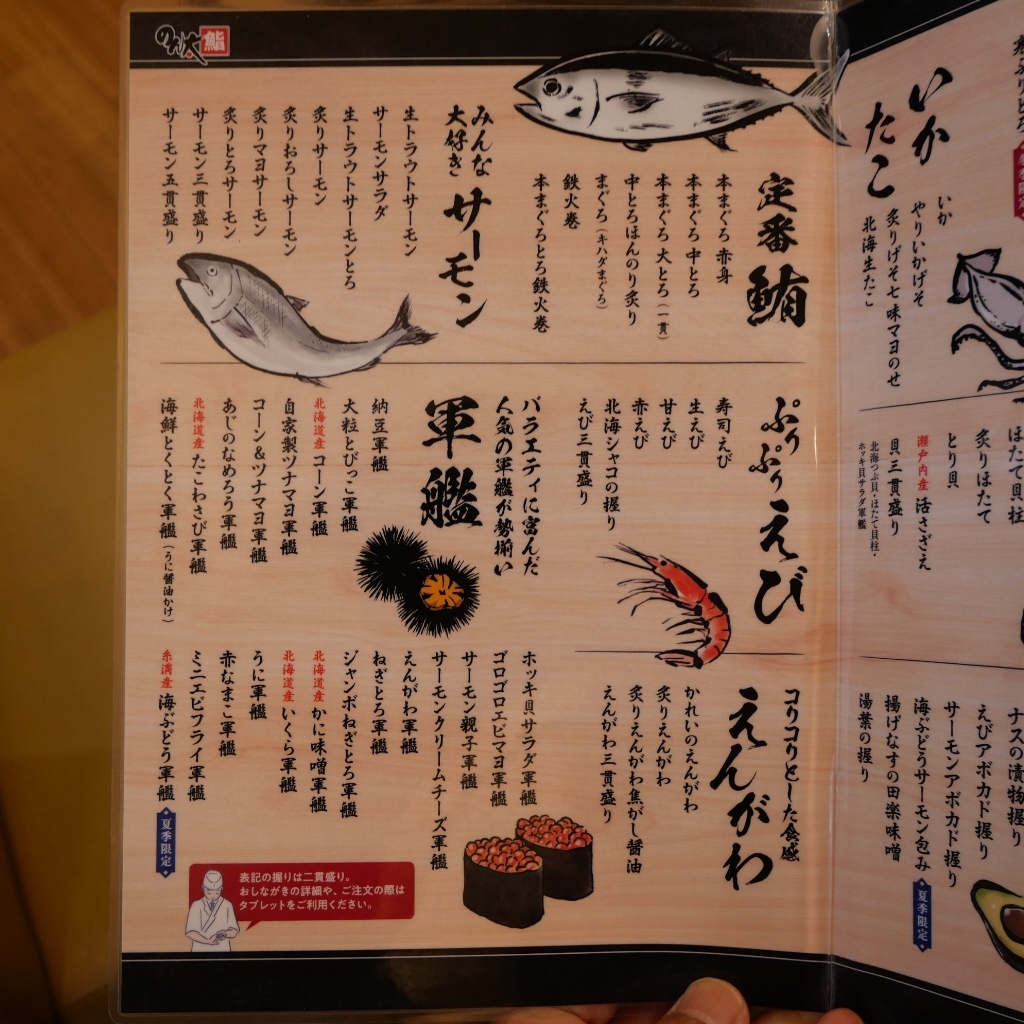 いか
たこ
いか
やりいかげそ
炙りげそ七味マヨのせ
北海生たこ
ほたて貝柱
炙りほたて
とり貝
瀬戸内産 活さざえ
貝三貫盛り
北海つぶ貝・ほたて貝柱・
ホッキ貝サラダ軍艦
ナスの漬物握り
えびアボカド握り
サーモンアボカド握り
海ぶどうサーモン包み 夏季限定
揚げなすの田楽味噌
湯葉の握り
鮨
定番 鮪
本まぐろ 赤身
本まぐろ 中とろ
本まぐろ 大とろ(一貫)
中とろほんのり炙り
まぐろ(キハダまぐろ)
鉄火巻
本まぐろとろ鉄火巻
みんな
大好き サーモン
生トラウトサーモン
サーモンサラダ
生トラウトサーモンとろ
炙りサーモン
炙りおろしサーモン
炙りマヨサーモン
炙りとろサーモン
サーモン三貫盛り
サーモン五貫盛り
ぷりぷり えび
寿司えび
生えび
甘えび
赤えび
北海シャコの握り
えび三貫盛り
バラエティに富んだ
人気の軍艦が勢揃い
軍艦
納豆軍艦
大粒とびっこ軍艦
北海道産 コーン軍艦
自家製ツナマヨ軍艦
コーン&ツナマヨ軍艦
あじのなめろう軍艦
北海道産 たこわさび軍艦
海鮮とくとく軍艦(うに醤油かけ)
コリコリとした食感
えんがわ
かれいのえんがわ
炙りえんがわ
炙りえんがわ焦がし醤油
えんがわ三貫盛り
ホッキ貝サラダ軍艦
ゴロゴロエビマヨ軍艦
サーモン親子軍艦
サーモンクリームチーズ軍艦
えんがわ軍艦
ねぎとろ軍艦
ジャンボねぎとろ軍艦
北海道産 かに味噌軍艦
北海道産 いくら軍艦
うに軍艦
赤なまこ軍艦
ミニエビフライ軍艦
糸満産 海ぶどう軍艦 夏季限定
表記の握りは二貫盛り。
おしながきの詳細や、ご注文の際は
タブレットをご利用ください。